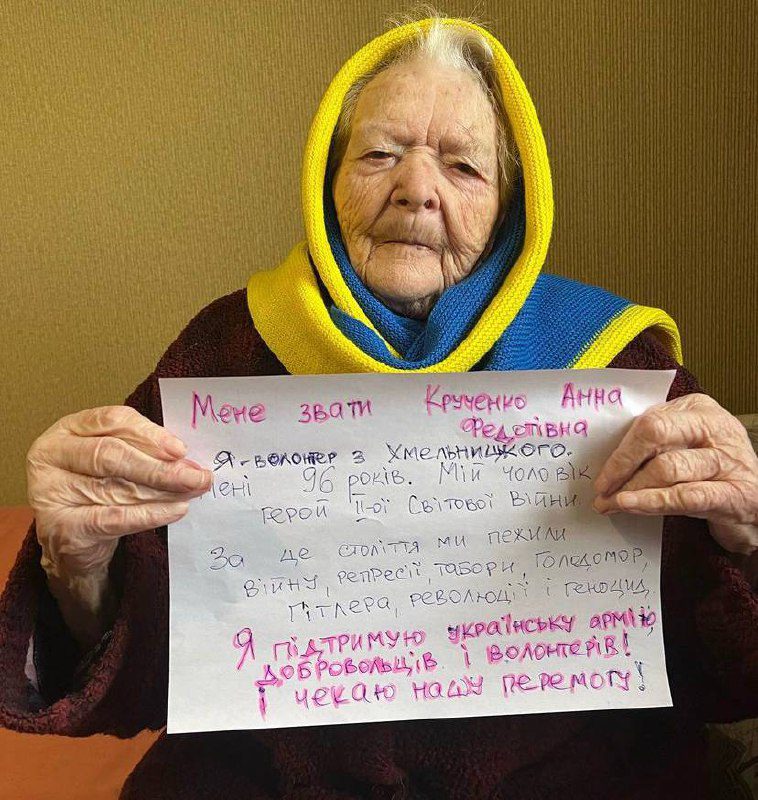 Мене звати Крученко Анна
Федотівна
Я - волонтер з Хмельницького.
Мені 96 років. Мій чоловік
герой ІІ-ої Світової Війни
За це століття ми пежили
війну, репресії, табори, Голодомор,
Гітлера, революції і геноцид.
Я підтримую українську армію,
добровольців і волонтерів!
І чекаю нашу перемогу!